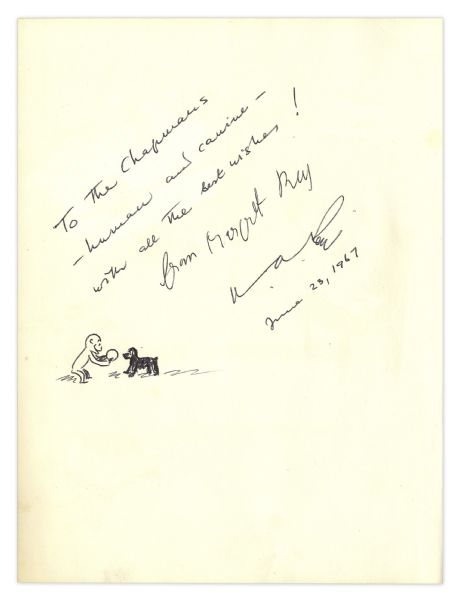 To the Chapmans
- human and canine -
with all the best wishes!
from Margret Rey
H. A. Rey
June 23, 1967